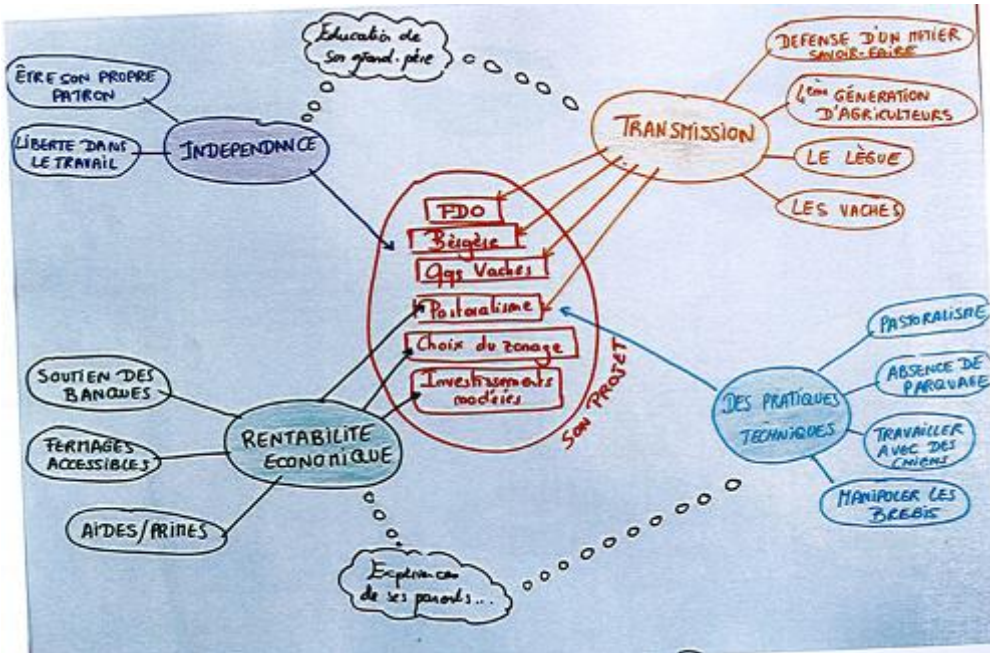 Éducation de
son grand-père
ÊTRE SON PROPRE
PATRON
LIBERTE DANS
LE TRAVAIL
INDEPENDANCE
TRANSMISSION
DEFENSE D'UN METIER
SAVOIR-FAIRE
4ème GÉNERATION
D'AGRICULTEURS
LE LÈGUE
LES VACHES
Bergère
Qqs Vaches
Pastoralisme
Choix du zonage
Investissements
modérés
SON PROJET
SOUTIEN DES
BANQUES
FERMAGES
ACCESSIBLES
AIDES/PRIMES
RENTABILITE
ECONOMIQUE
DES PRATIQUES
TECHNIQUES
PASTORALISME
ABSENCE DE
PARQUAGE
TRAVAILLER
AVEC DES
CHIENS
MANIPULER LES
BREBIS
Expériences
de ses parents...